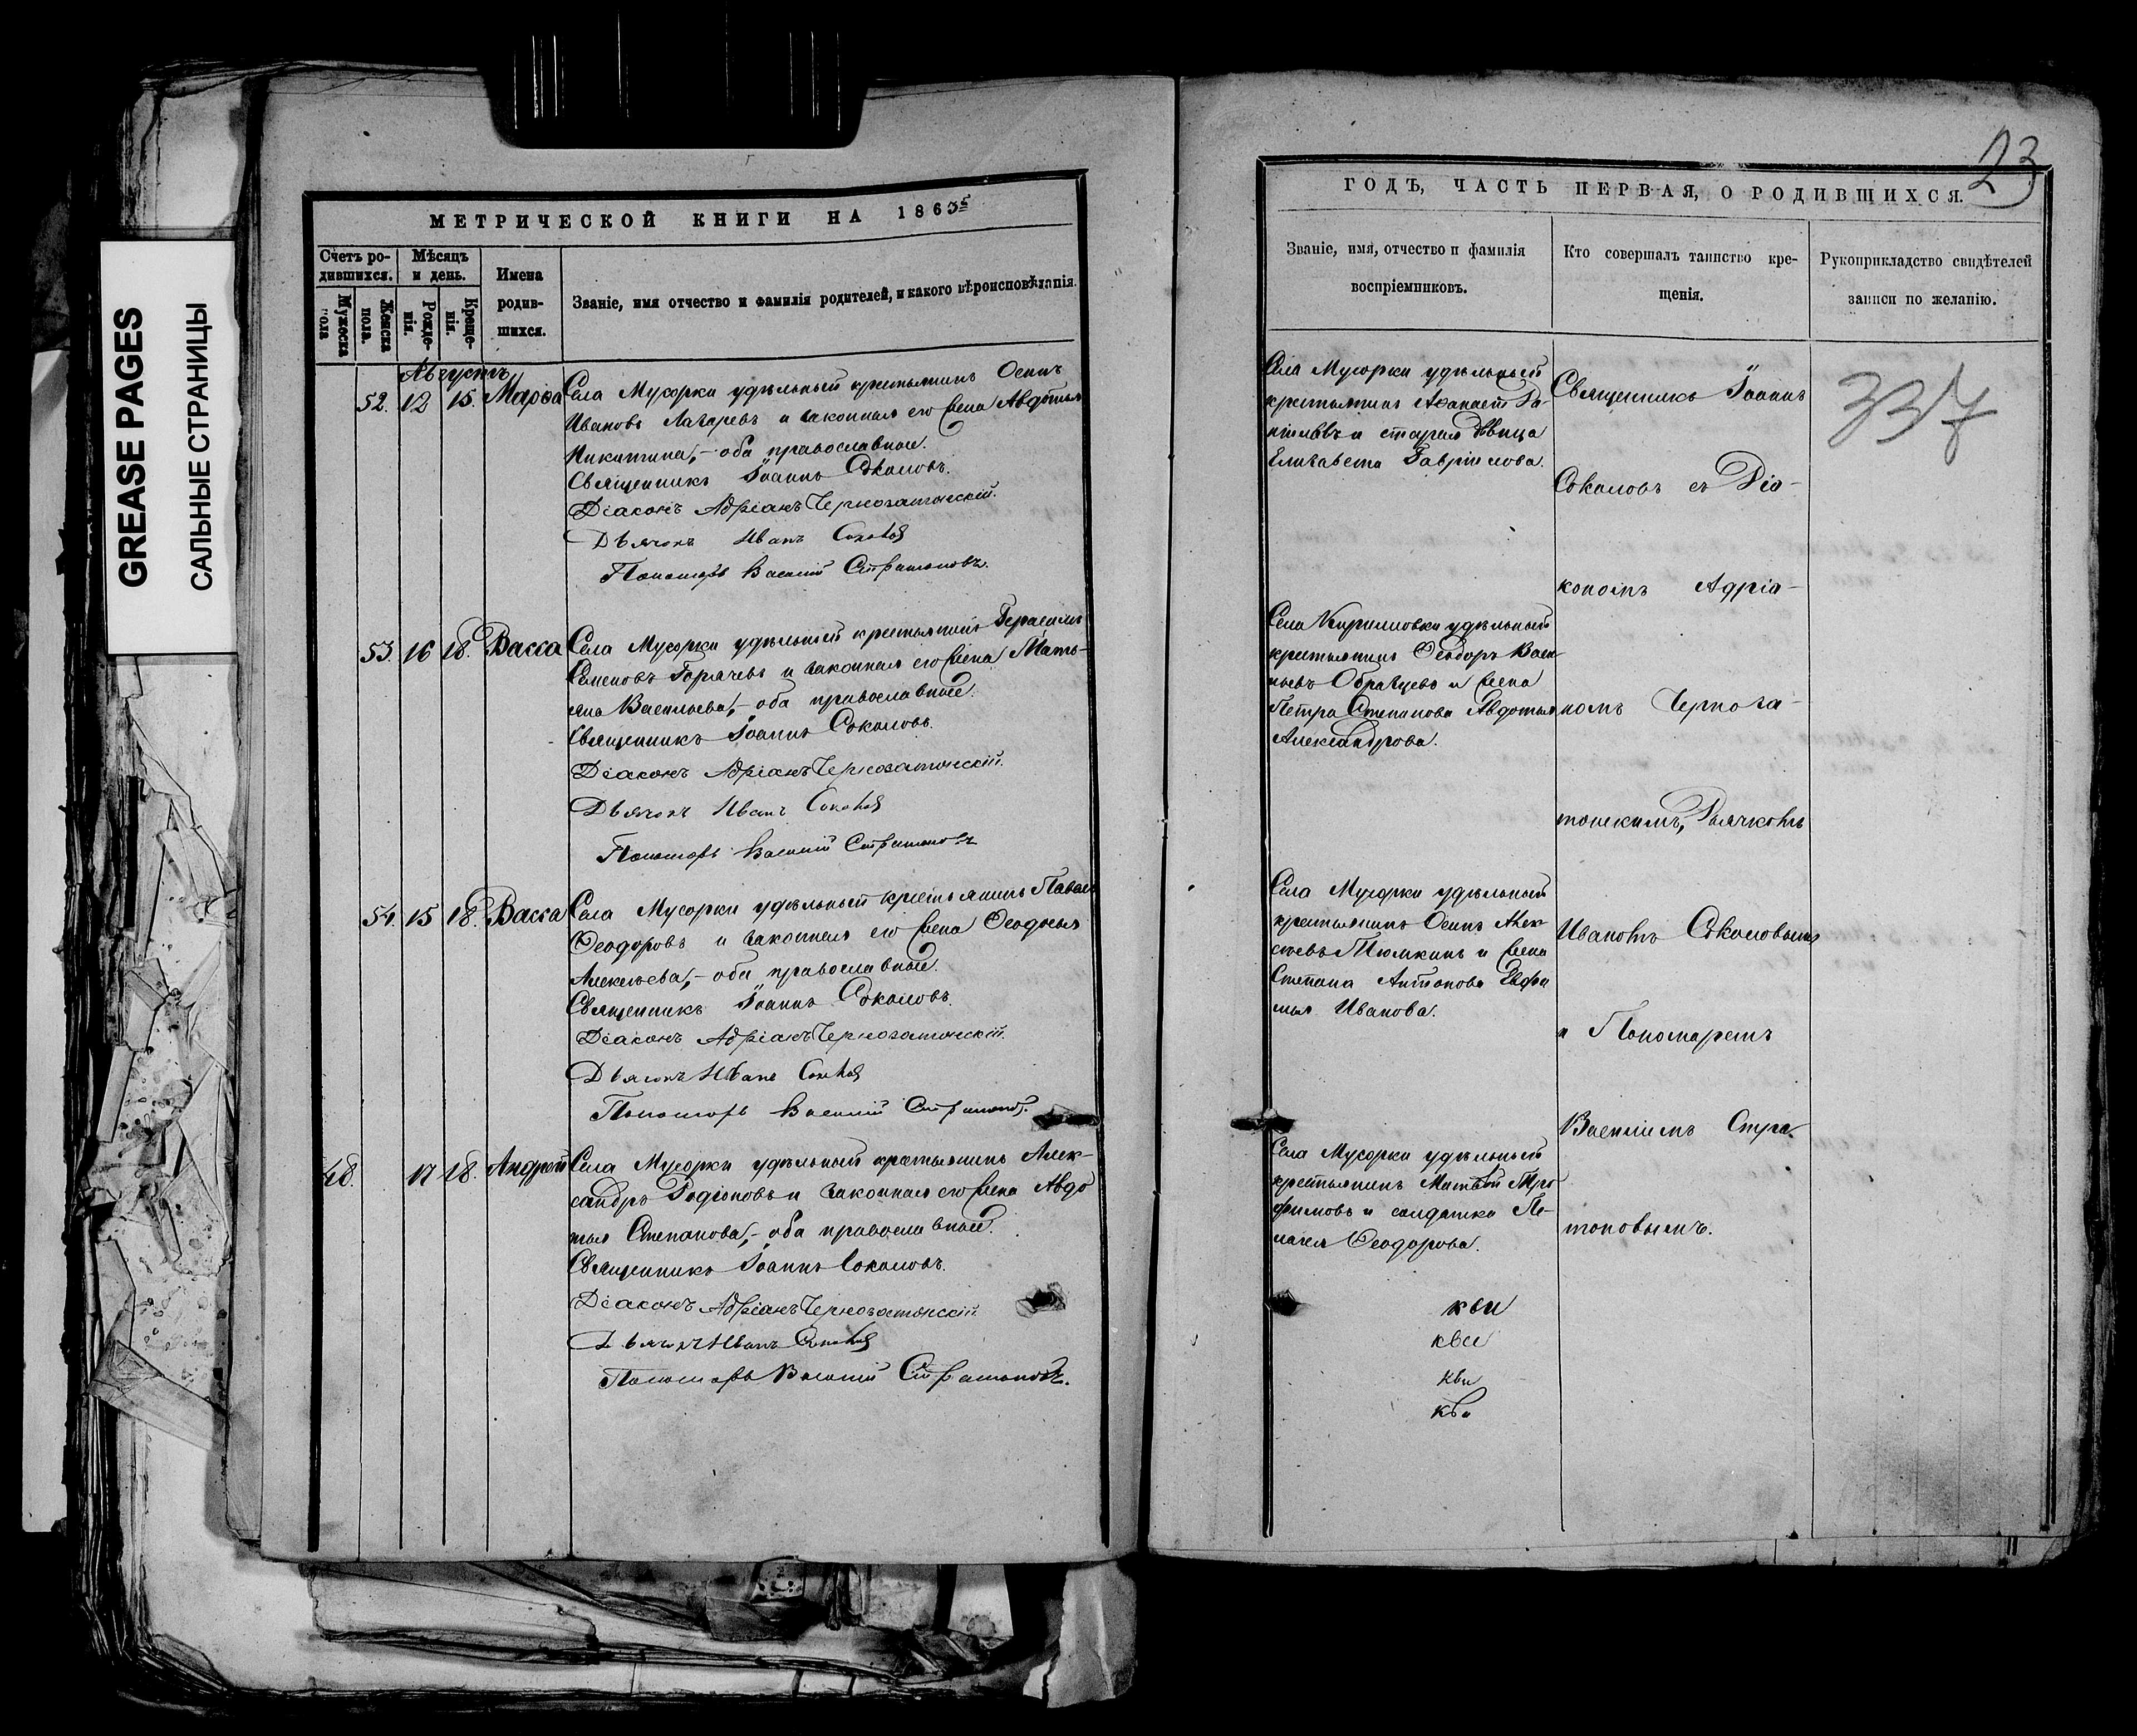 GREASE PAGES
САЛЬНЫЕ СТРАНИЦЫ
МЕТРИЧЕСКОЙ КНИГИ НА 1865
Счетъ ро-
дившихся.
Мужеска
пола
Женска
пола.
Мѣсяцъ
и день.
Рожде-
нія.
Креще-
нія.
Имена
родив-
шихся.
Званіе, имя отчество и фамилія родителей, и какого вѣроисповѣданія.
Августъ
52. 12 15. Марѳа Села Мусорки удѣльный крестьянинъ Осипъ
Ивановъ Лазаревъ и законная его жена Авдотья
Никитина, – оба православные.
Священникъ Іоаннъ Соколовъ.
Діаконъ Адріанъ Чернозатонскій.
Дьячокъ Иванъ Соколовъ
Пономарь Василій Стратоновъ.
53. 16 18. Васса Села Мусорки удѣльный крестьянинъ Герасимъ
Семеновъ Горячевъ и законная его жена Мать-
яна Васильева, – оба православные.
Священникъ Іоаннъ Соколовъ.
Діаконъ Адріанъ Чернозатонскій.
Дьячокъ Иванъ Соколовъ
Пономарь Василій Стратоновъ
54. 15 18. Васса Села Мусорки удѣльный крестьянинъ Павелъ
Ѳеодоровъ и законная его жена Ѳеодосья
Алексѣева, – оба православные.
Священникъ Іоаннъ Соколовъ.
Діаконъ Адріанъ Чернозатонскій.
Дьячокъ Иванъ Соколовъ
Пономарь Василій Стратоновъ.
48. 17 18. Андрей Села Мусорки удѣльный крестьянинъ Алек-
сандръ Родіоновъ и законная его жена Авдо
тья Степанова, – оба православные.
Священникъ Іоаннъ Соколовъ.
Діаконъ Адріанъ Чернозатонскій.
Дьячокъ Иванъ Соколовъ
Пономарь Василій Стратоновъ.
23
ГОДЪ, ЧАСТЬ ПЕРВАЯ, О РОДИВШИХСЯ.
Званіе, имя, отчество и фамилія
воспріемниковъ.
Кто совершалъ таинство кре-
щенія.
Рукоприкладство свидѣтелей
записи по желанію.
337
Села Мусорки удѣльный
крестьянинъ Аѳанасій Да-
ниловъ и старая дѣвица
Елизавета Гавріилова.
Села Кирилловки удѣльный
крестьянинъ Ѳеодоръ Васи-
льевъ Образцевъ и жена
Петра Степанова Авдотья
Александрова.
Села Мусорки удѣльный
крестьянинъ Осипъ Алек-
сѣевъ Тюмкинъ и жена
Степана Антонова Евфи
мья Иванова.
Села Мусорки удѣльный
крестьянинъ Матвѣй Тро
фимовъ и солдатка Пе-
лагея Ѳеодорова.
Священникъ Іоаннъ
Соколовъ съ Діа-
кономъ Адріа-
номъ Черноза-
тонскимъ, Дьячкомъ
Иваномъ Соколовымъ
и Пономаремъ
Василіемъ Стра-
тоновымъ.